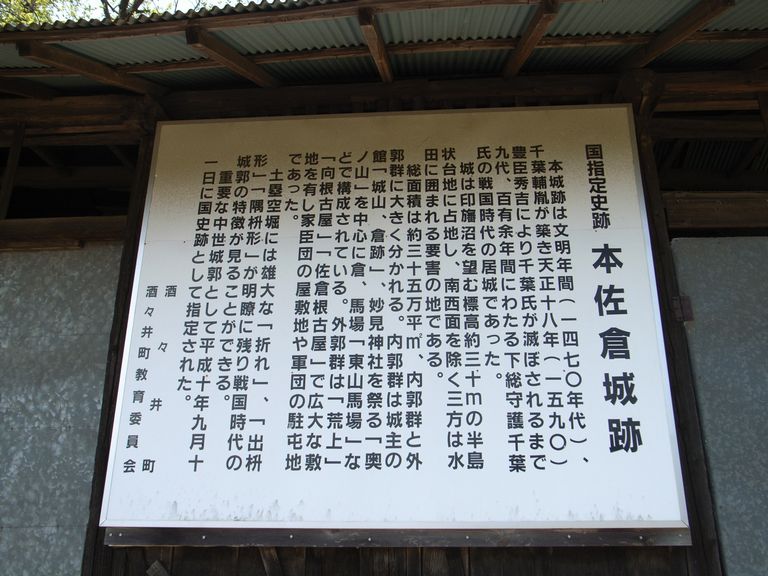 国指定史跡 本佐倉城跡
本城跡は文明年間(一四七〇年代)、
千葉輔胤が築き天正十八年(一五九〇)
豊臣秀吉により千葉氏が滅ぼされるまで
九代、百有余年間にわたる下総守護千葉
氏の戦国時代の居城であった。
城は印旛沼を望む標高約三十mの半島
状台地に占地し、南西面を除く三方は水
田に囲まれる要害の地である。
総面積は約三十五万平㎡、内郭群と外
郭群に大きく分かれる。内郭群は城主の
館「城山、倉跡」、妙見神社を祭る「奥
ノ山」を中心に倉、馬場「東山馬場」な
どで構成されている。外郭群は「荒上」
「向根古屋」「佐倉根古屋」で広大な敷
地を有し家臣団の屋敷地や軍団の駐屯地
であった。
土塁空堀には雄大な「折れ」、「出枡
形」「隅枡形」が明瞭に残り戦国時代の
城郭の特徴が見ることができる。
重要な中世城郭として平成十年九月十
一日に国史跡として指定された。
酒々井町
酒々井町教育委員会